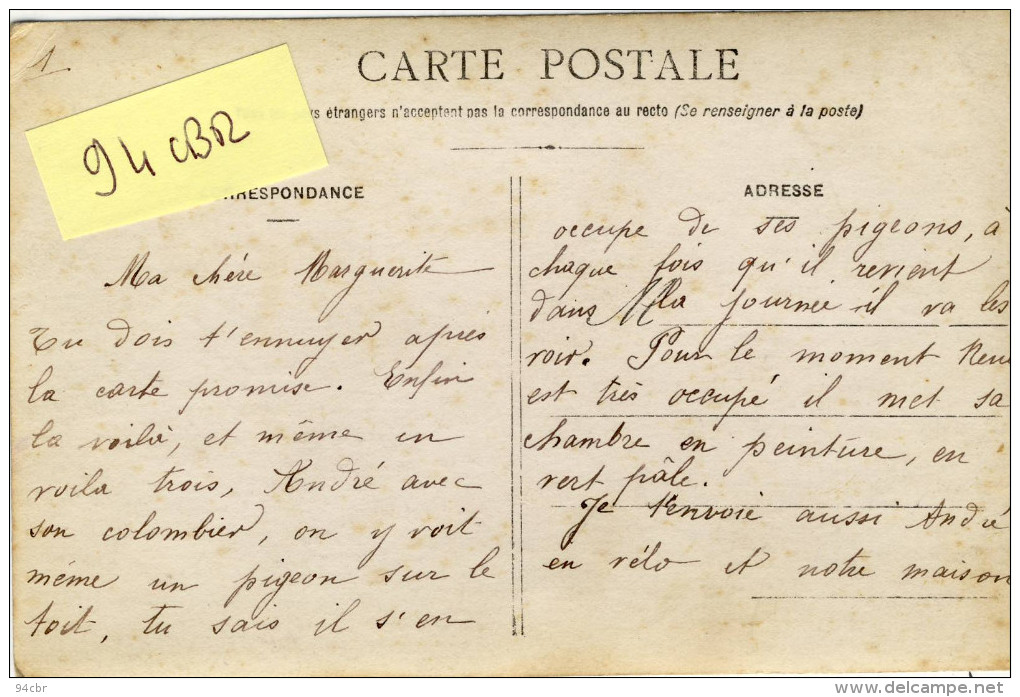 1
CARTE POSTALE
pays étrangers n'acceptent pas la correspondance au recto (Se renseigner à la poste)
94 CBR
RRESPONDANCE
Ma chère Marguerite
Tu dois t'ennuyer après
la carte promise. Enfin
la voilà, et même en
voila trois, André avec
son colombier, on y voit
même un pigeon sur le
toit, tu sais il s'en
ADRESSE
occupe de ses pigeons, à
chaque fois qu'il revient
dans la journée il va les
voir. Pour le moment
est très occupé il met sa
chambre en peinture, en
vert pâle.
Je t'envoie aussi André
en vélo et notre maison
94cbr
www.delcampe.net